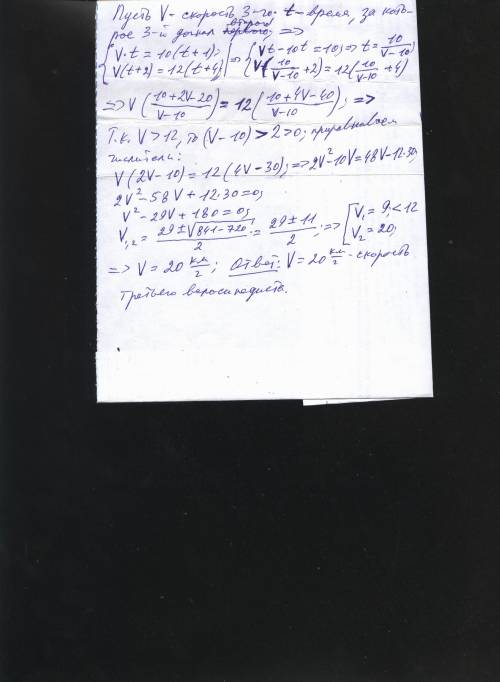 Пусть V - скорость 3-го. t - время, за кото-
рое 3-й догнал второго первого. =>
{V·t = 10(t+1); => {Vt-10t=10; => t = 10/(V-10)
{V(t+2) = 12(t+4) {V(10/(V-10) + 2) = 12(10/(V-10) + 4)
=> V((10+2V-20)/(V-10)) = 12((10+4V-40)/(V-10)); =>
Т.к. V > 12, то (V-10) > 2 > 0; приравниваем
числители:
V(2V-10) = 12(4V-30); => 2V²-10V = 48V-12·30;
2V²-58V+12·30=0;
V²-29V+180=0;
V₁,₂ = (29±√(841-720))/2 = (29±11)/2; => [V₁ = 9; < 12
V₂ = 20;
=> V = 20 км/г; Ответ: V = 20 км/г - скорость
третьего велосипедиста.